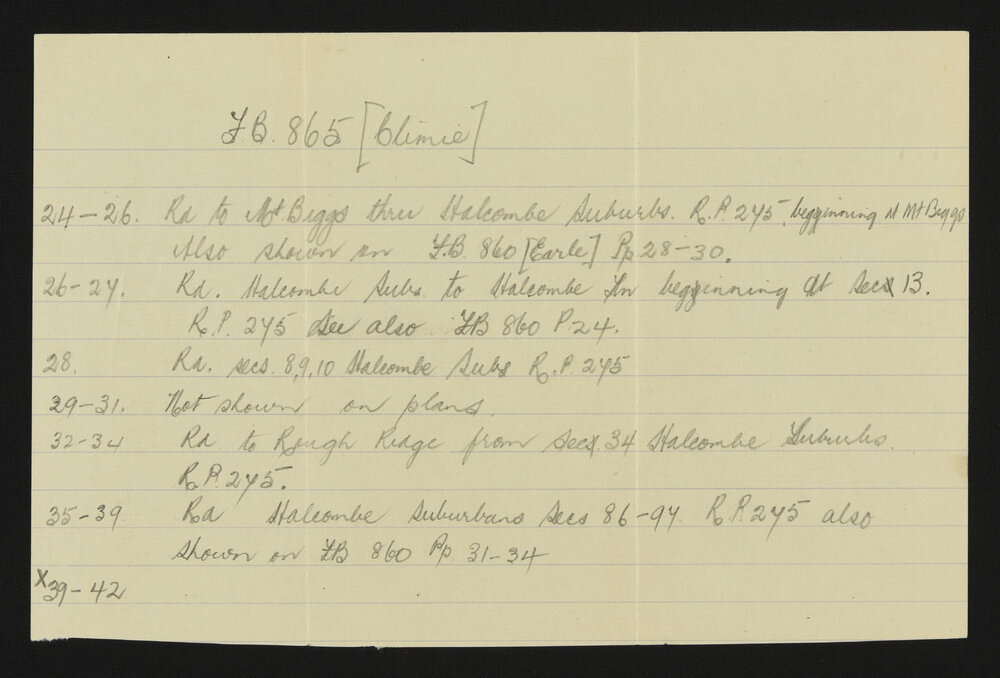 F.B. 865 [Climie]
24-26. Rd to Mt Biggs thru Halcombe Suburbs. R.P. 245, begginning at Mt Biggs
Also shown on F.B. 860 [Earle] Pp 28-30.
26-27. Rd. Halcombe Subs. to Halcombe Tn beginning at Sec 13.
R.P. 245 See also FB 860 P.24.
28. Rd. secs. 8,9,10 Halcombe Subs R.P. 245
29-31. Not shown on plans.
32-34 Rd. to Rough Ridge from Sec 34 Halcombe Suburbs.
R.P. 245.
35-39 Rd Halcombe Suburbans Secs 86-97. R.P. 245 also
shown on FB 860 Pp. 31-34
X39-42